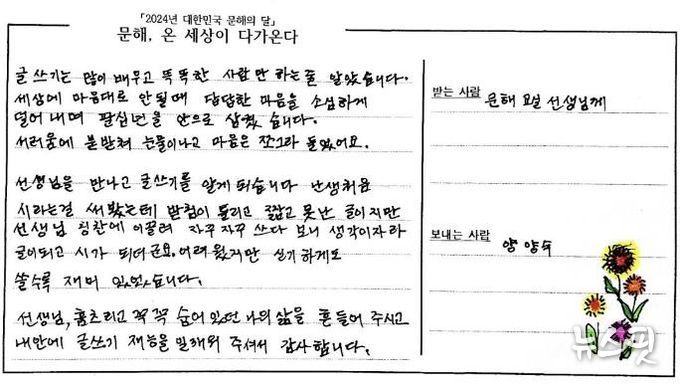 「2024년 대한민국 문해의 달」
문해, 온 세상이 다가온다
글쓰기는 많이 배우고 똑똑한 사람만 하는줄 알았습니다.
세상에 마음대로 안될때 답답한 마음을 소심하게
덜어내며 팔십년을 안으로 삼켰습니다.
서러움에 복받쳐 눈물이나고 마음은 쪼그라 들었어요.
선생님을 만나고 글쓰기를 알게 되습니다 난생처음
시라는걸 써봤는데 받침이 틀리고 굷잖고 못난 글이지만
선생님 칭찬에 이끌려 자꾸자꾸 쓰다 보니 생각이자라
글이되고 시가 되더군요. 어려웠지만 신기하게도
쓸수록 재미 있었습니다.
선생님, 움츠리고 꼭꼭 숨어 있던 나의 삶을 흔들어 주시고
내안에 글쓰기 재능을 일깨워 주셔서 감사합니다.
받는 사람
문해 교실 선생님께
보내는 사람
양양숙
뉴스핌